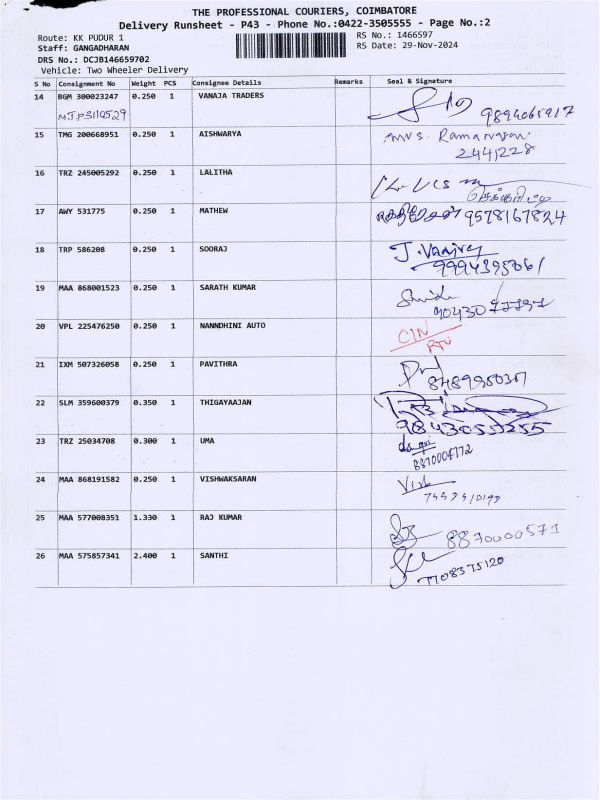 THE PROFESSIONAL COURIERS, COIMBATORE
Delivery Runsheet - P43 - Phone No.:0422-3505555 - Page No.:2
Route: KK PUDUR 1
RS No.: 1466597
Staff: GANGADHARAN
RS Date: 29-Nov-2024
DRS No.: DCJB146659702
Vehicle: Two Wheeler Delivery
S No Consignment No Weight PCS Consignee Details Remarks Seal & Signature
14 BGM 300023247 0.250 1 VANAJA TRADERS
9894065917
15 TMG 200668951 0.250 1 AISHWARYA Mrs. Ramanayan
2441228
16 TRZ 245005292 0.250 1 LALITHA
17 AWY 531775 0.250 1 MATHEW 9578167824
18 TRP 586208 0.250 1 SOORAJ
19 MAA 868001523 0.250 1 SARATH KUMAR
20 VPL 225476250 0.250 1 NANNDHINI AUTO
21 IXM 507326058 0.250 1 PAVITHRA
22 SLM 359600379 0.350 1 THIGAYAAJAN
9843055255
23 TRZ 25034708 0.300 1 UMA
24 MAA 868191582 0.250 1 VISHWAKSARAN
25 MAA 577008351 1.330 1 RAJ KUMAR 8870000571
26 MAA 575857341 2.400 1 SANTHI
7708375120